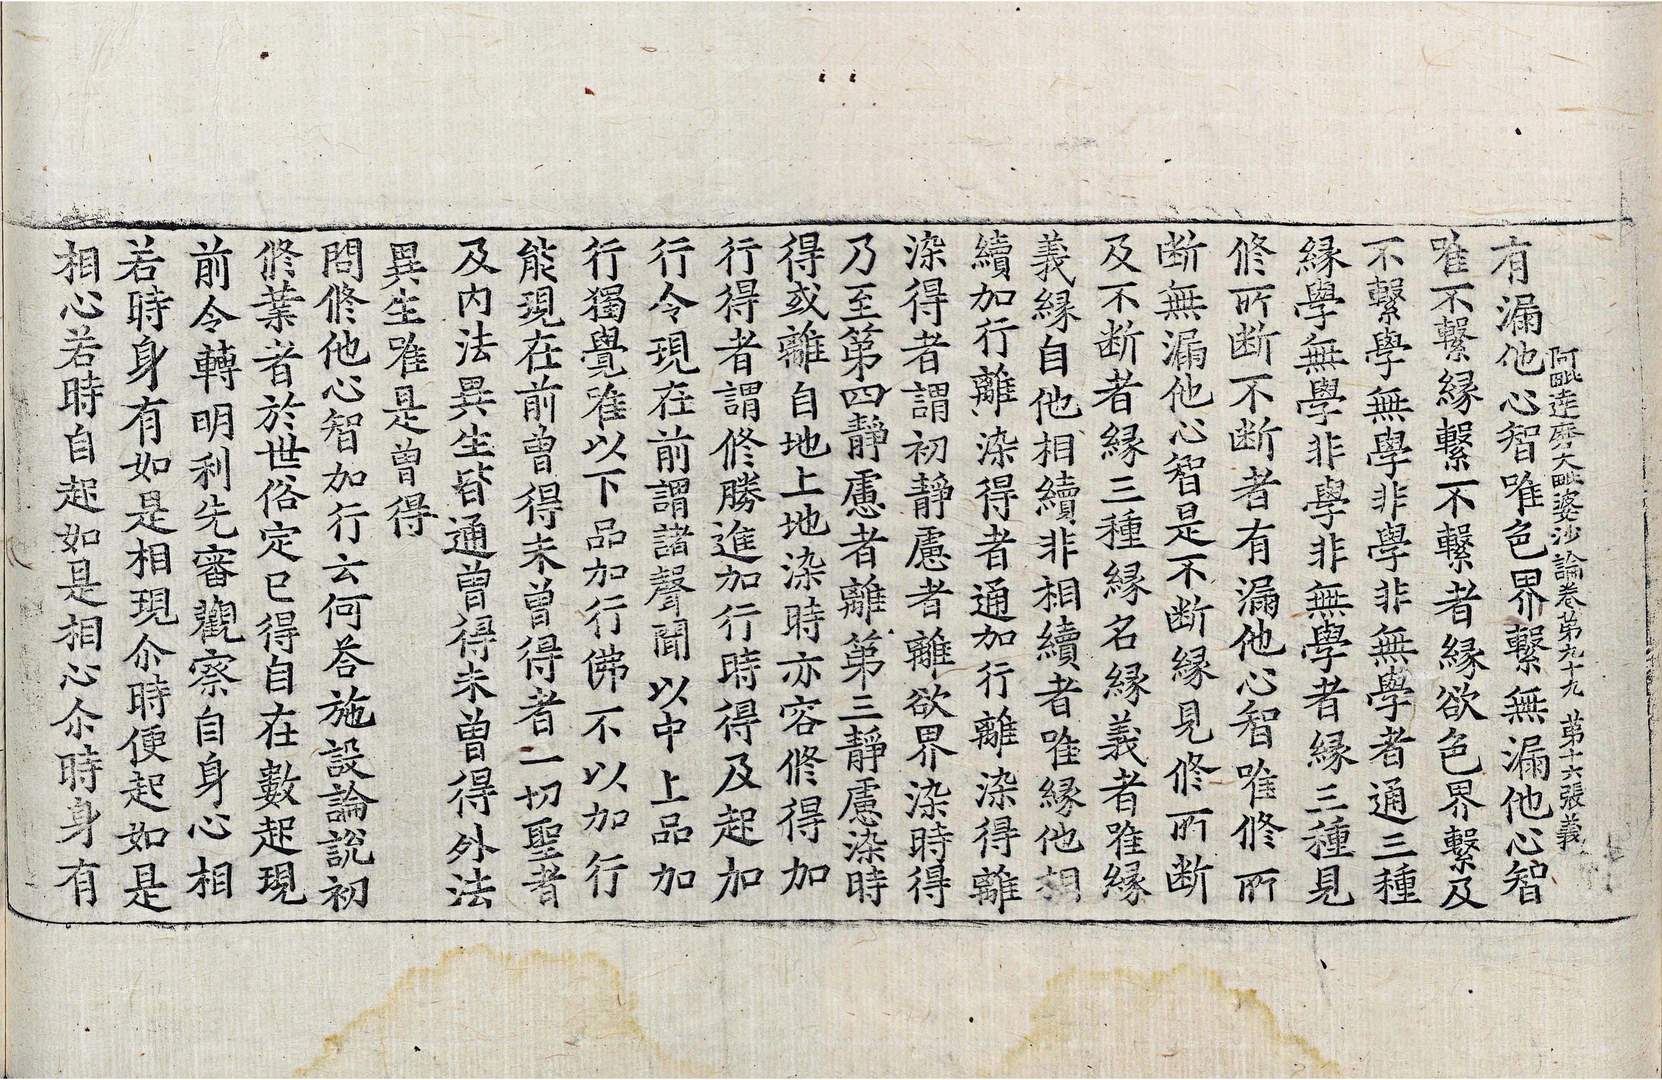 阿毗達磨大毗婆沙論卷第九十九 第十六張 義
有漏他心智唯色界繫無漏他心智
唯不繫緣繫不繫者緣欲色界繫及
不繫學無學非學非無學者通三種
緣學無學非學非無學者緣三種見
修所断不断者有漏他心智唯修所
断無漏他心智是不断緣見修所断
及不断者緣三種緣名緣義者唯緣
義緣自他相續非相續者唯緣他相
續加行離染得者通加行離染得離
染得者謂初靜慮者離欲界染時得
乃至第四靜慮者離第三靜慮染時
得或離自地上地染時亦容修得加
行得者謂修勝進加行時得及起加
行令現在前謂諸聲聞以中上品加
行獨覺唯以下品加行佛不以加行
能現在前曾得未曾得者一切聖者
及內法異生皆通曾得未曾得外法
異生唯是曾得
問修他心智加行云何荅施設論說初
修業者於世俗定已得自在數起現
前令轉明利先審觀察自身心相
若時身有如是相現尒時便起如是
相心若時自起如是相心尒時身有